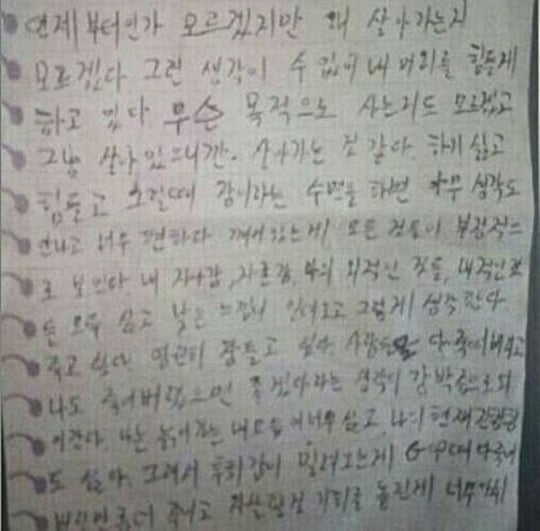 언제부터인가 모르겠지만 왜 살아가는지
모르겠다 그런 생각이 수 없이 내 머리를 힘들게
하고 있다 무슨 목적으로 사는지도 모르겠고
그냥 살아 있으니깐. 살아가는 것 같다. 하기 싫고
힘들고 그럴때 잠이라는 수면을 하면 아무 생각도
안나고 너무 편하다. 깨어있는게 모든 것들이 부정적으
로 보인다. 내 자사감, 자존감, 나의 외적인 것들, 내적인 것
들 모두 싫고 낮은 느낌이 그렇게 생각한다.
죽고 싶다. 영원히 잠들고 싶다. 사람들을 다 죽여버리고
나도 죽어버렸으면 좋겠다라는 생각이 강박적으로
나는 늙어가는 내모습이 너무 싫고, 나의 현재
도 싫다. 그래서 후회감이 밀려오는게
죽이고 기회를 놓친게 너무